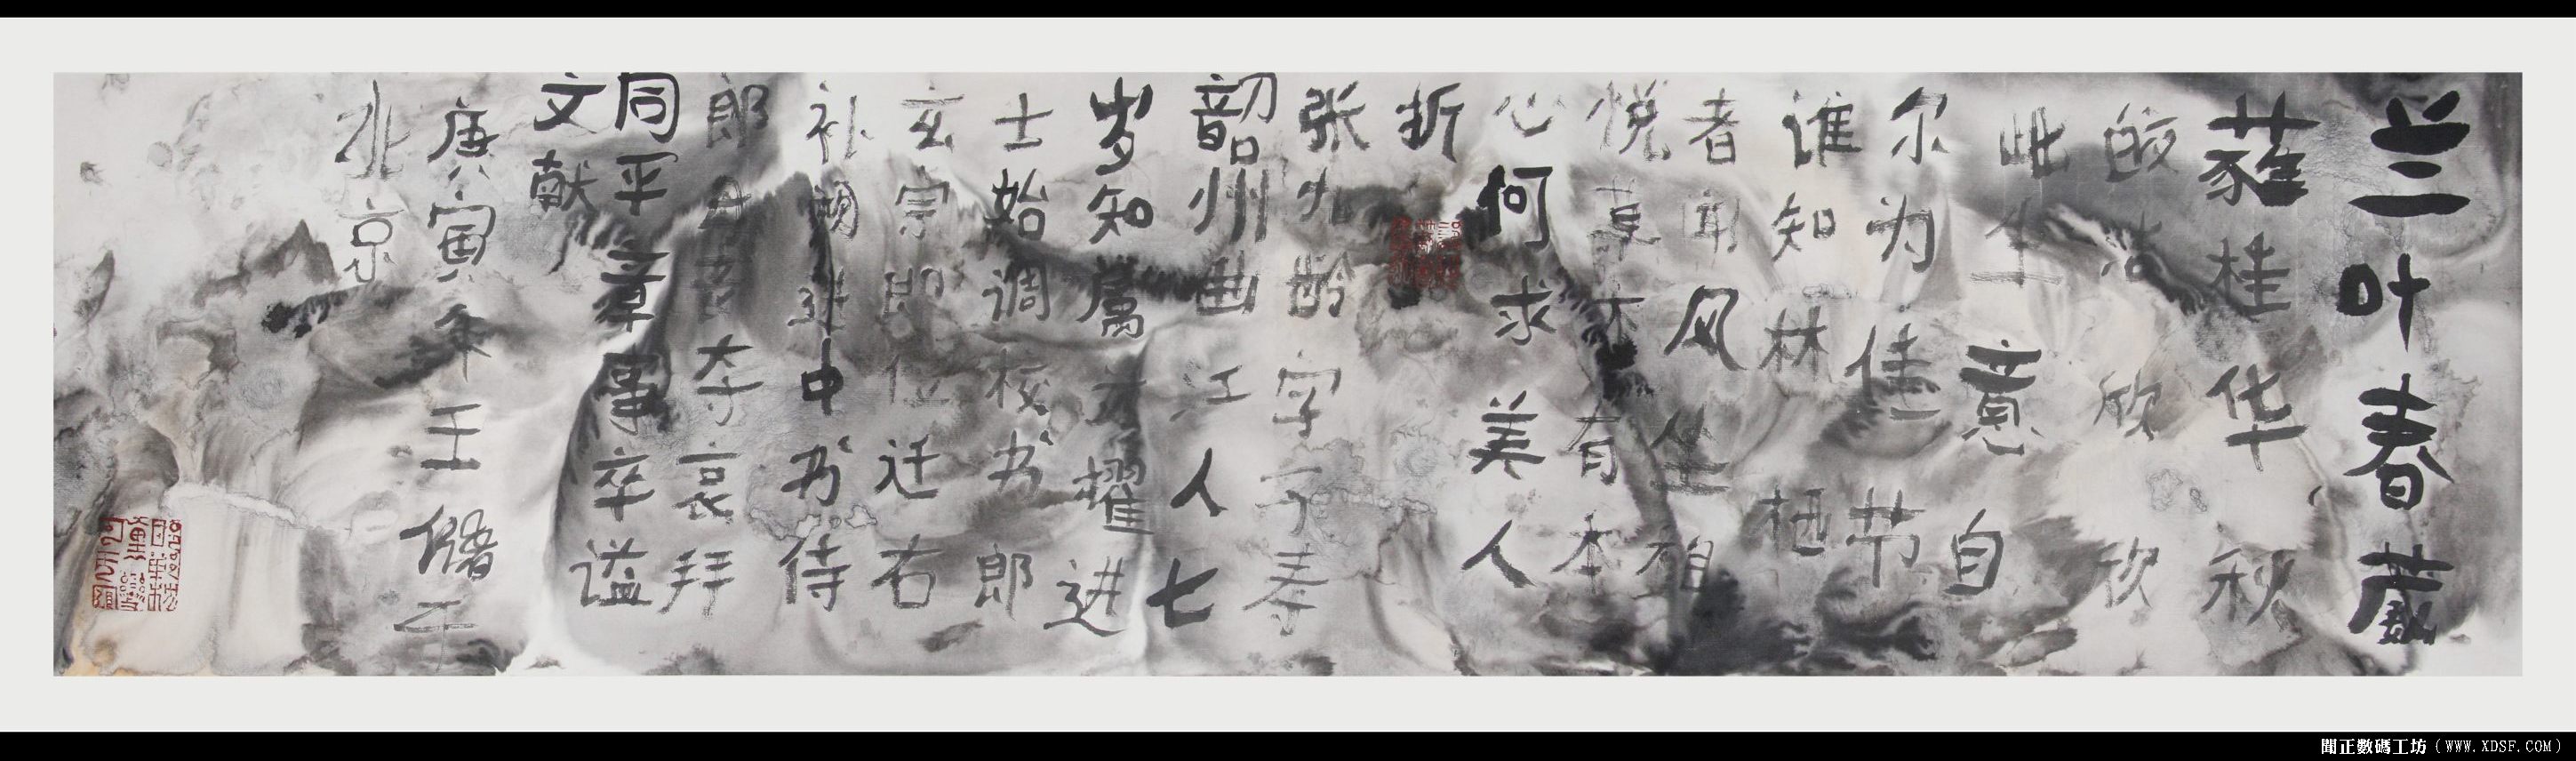 兰叶春葳
蕤桂华秋
皎洁欣欣
此生意自
尔为佳节
谁知林栖
者闻风坐相
悦草木有本
心何求美人
折
张九龄字子寿
韶州曲江人七
岁知属文擢进
士始调校书郎
玄宗即位迁右
补阙进中书侍
郎 夺哀拜
同平章事卒谥
文献
庚寅年王 于
北京
聞正數碼工坊（WWW.XDSF.COM）